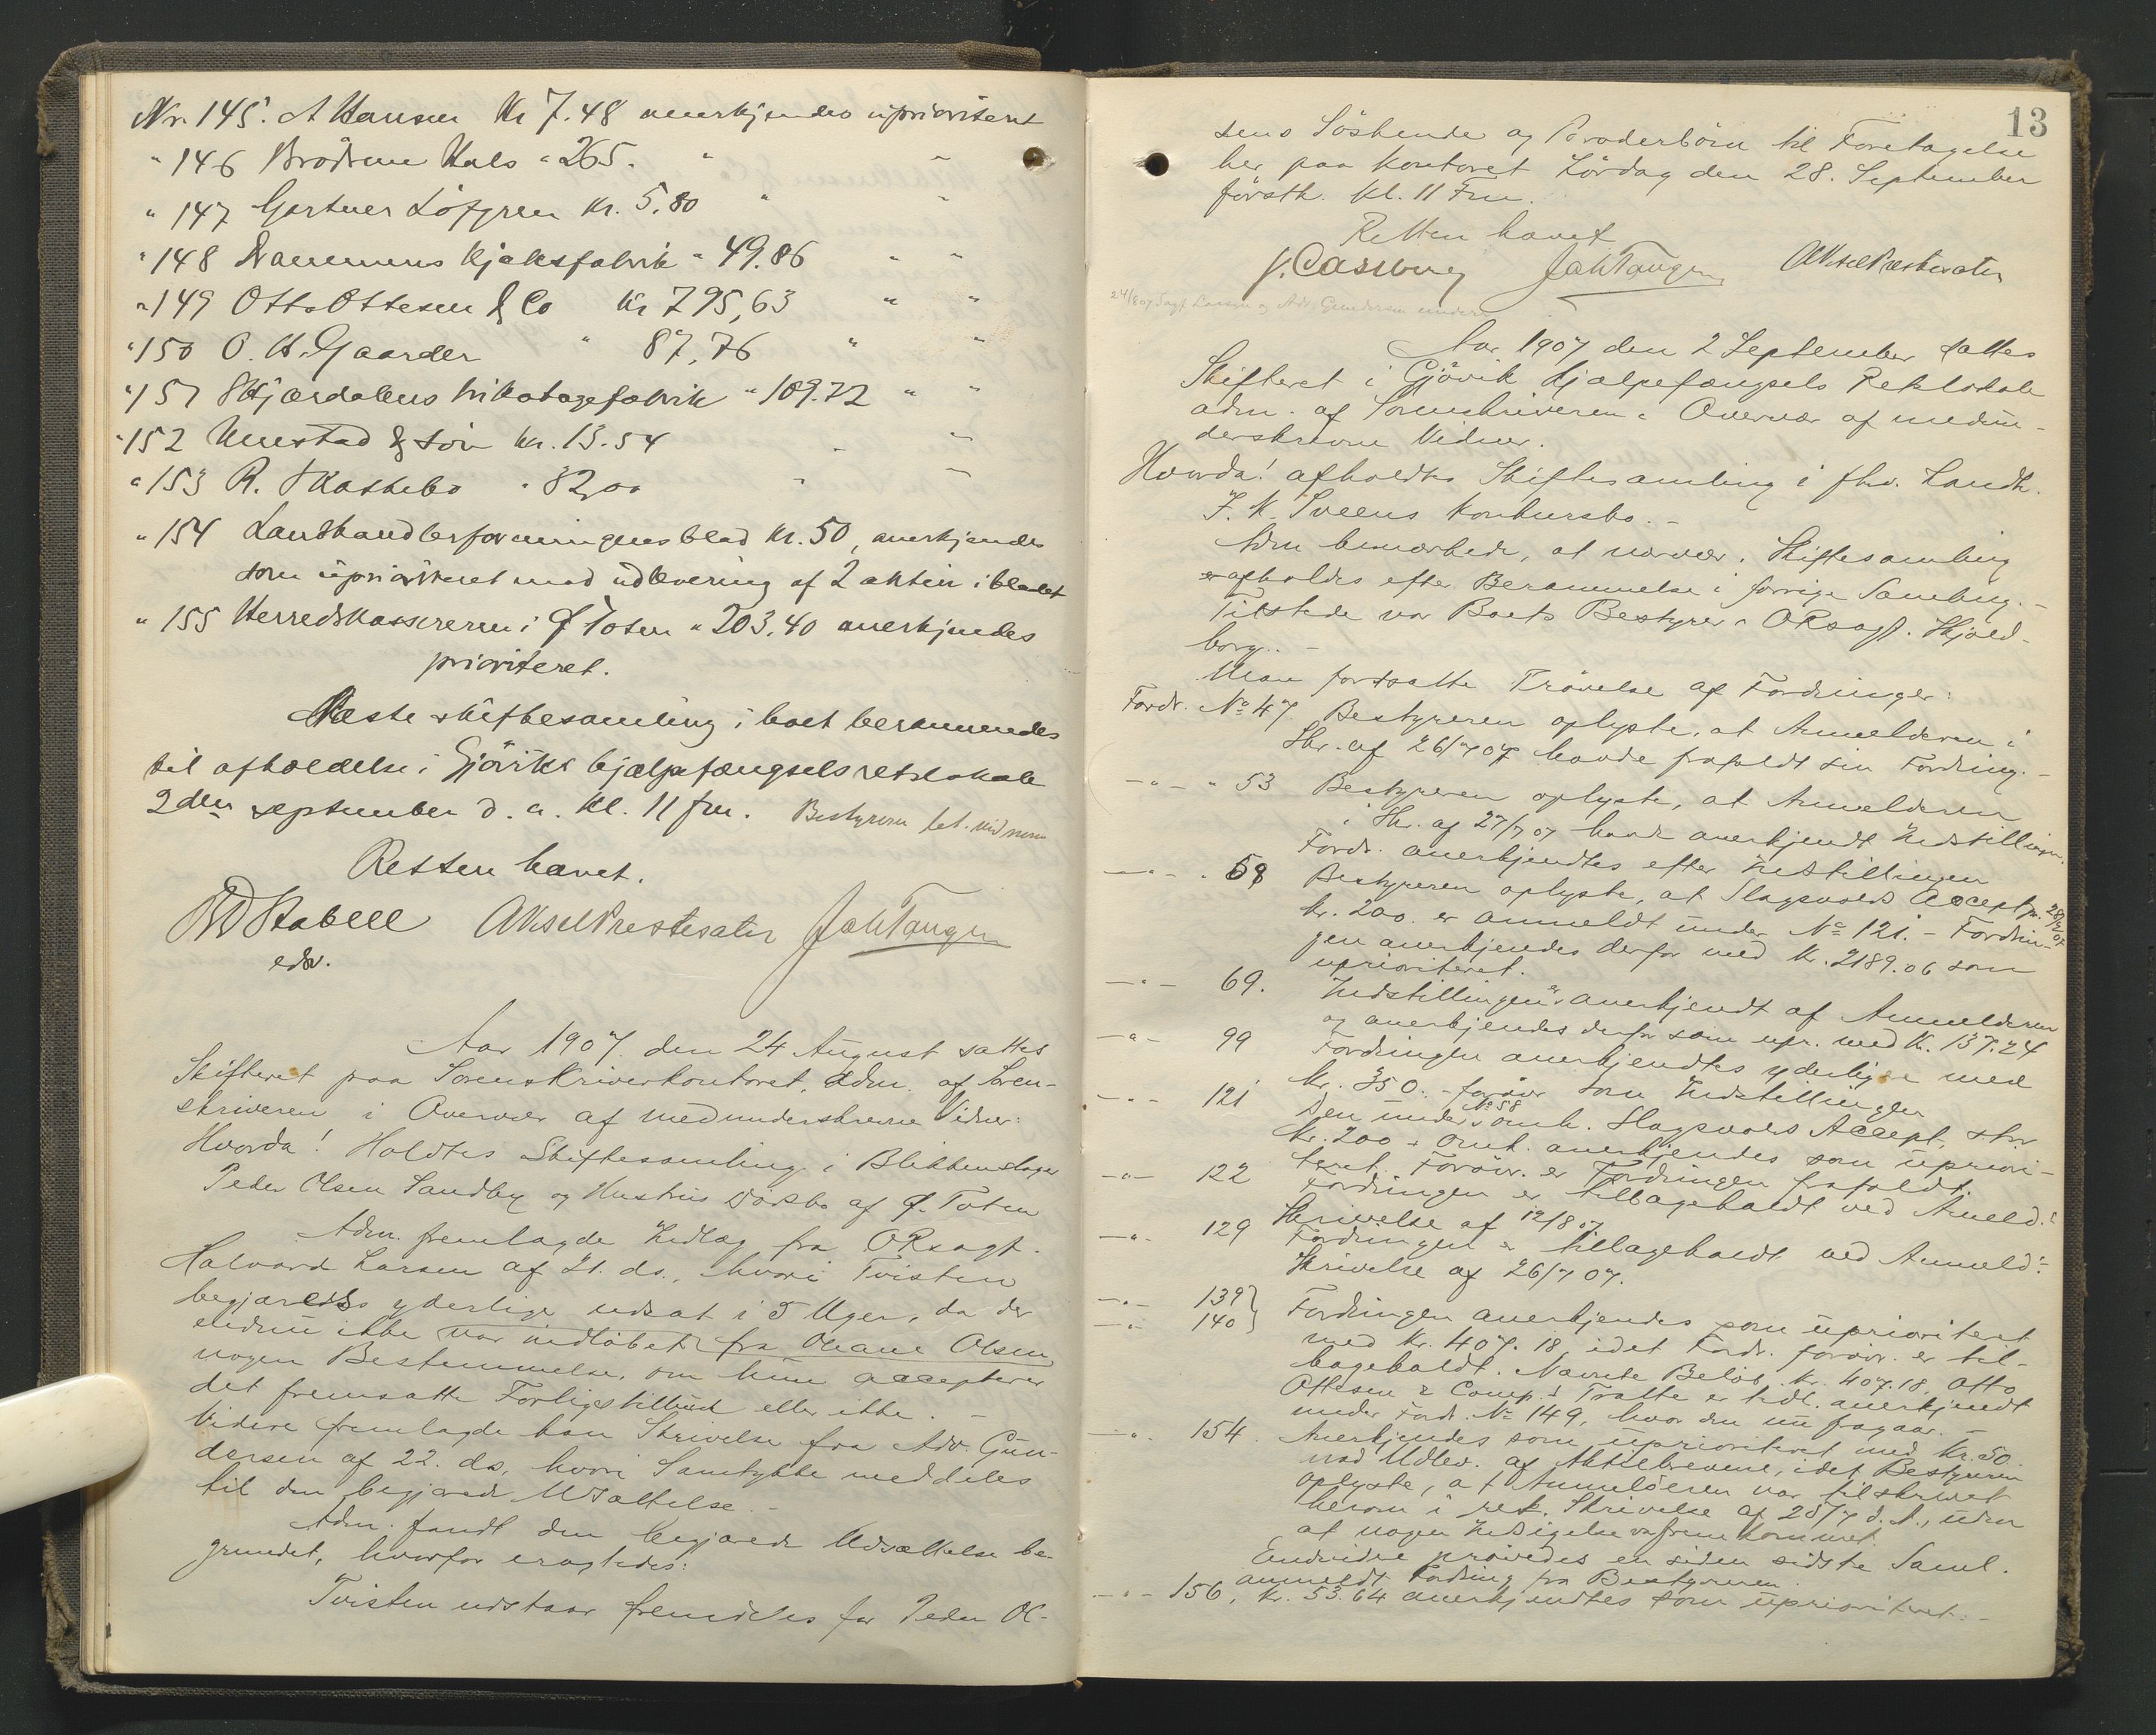 Nr. 145. A Hansen Kr 7.48 anerkjendes uprioriteret
" 146 Brødrene Hals " 265. " "
" 147 Gartner Löfgren Kr. 5,80 " "
" 148 Drammens Kjeksfabrik " 49.86 " "
" 149 Otto Ottesen & Co Kr 795,63 " "
" 150 O. H. Gaarder " 87,76 " "
" 151 Skjærdalens trikotagefabrik " 109.72 " "
" 152 Unestad & Søn Kr. 13.54 " "
" 153 R. Skattebo " 82,00 " "
" 154 Landhandlerforeningens blad Kr. 50, anerkjendes
som uprioriteret mod udlevering af 2 aktier i bladet
" 155 Herredskassereren i Ø Toten " 203.40 anerkjendes
prioriteret.
Næste skiftesamling i boet berammedes
til afholdelse i Gjøviks hjælpefængsels retslokale
2den september d. a. kl. 11 fm. Bestyreren
Retten hævet.
Stabell Aksel Prestesater Joh Tangen
edv.
Aar 1907 den 24 August sattes
Skifteret paa Sorenskriverkontoret, adm. af Soren-
skriveren i Overvær af medunderskrevne Vidner:
Hvorda! Holdtes Skiftesamling i Blikkenslager
Peder Olsen Sandby og Hustrus Dødsbo af Ø. Toten
Adm. fremlagde Indlæg fra ORsagf.
Halvard Larsen af 21. ds., hvori Tvisten
begjæredes yderlige udsat i 5 Uger, da der
endnu ikke var indløbet fra Oleane Olsen
nogen Bestemmelse, om hun accepterer
det fremsatte Forligstilbud eller ikke. -
Videre fremlagde han Skrivelse fra Adv. Gun-
dersen af 22. ds., hvori Samtykke meddeles
til den begjærede Udsættelse. -
Adm. fandt den begjærede Udsættelse be-
grundet, hvorfor eragtedes:
Tvisten udstaar fremdeles for Peder Ol-
13
sens Söskende og Broderbörn til Foretagelse
her paa Kontoret Lördag den 28. September
förstk. Kl. 11 Fm.
Retten hævet
J. Casberg Joh Tangen Aksel Prestesater
24/8 07 Sagf. Larsen og Adv. Gundersen underr.
Aar 1907 den 2 September sattes
Skifteret i Gjövik Hjælpefængsels Retslokale
adm. af Sorenskriveren i Overvær af medun-
derskrevne Vidner.
Hvorda! afholdtes Skiftesamling i fhv. Landh.
J. K. Sveens Konkursbo. -
Adm bemærkede, at nærvær. Skiftesamling
afholdes efter Berammelse i forrige Samling. -
Tilstede var Boets Bestyrer ORsagf. Skjold-
borg. -
Man fortsatte Prövelse af Fordringer:
Fordr. No 47. Bestyreren oplyste, at Anmelderen i
Skr. af 26/7 07 havde frafaldt sin Fordring. -
- " - " 53 Bestyreren oplyste, at Anmelderen
i Skr. af 27/7 07 havde anerkjendt Indstillingen.
Fordr. anerkjendtes efter Indstillingen
- " - " 58 Bestyreren oplyste, at Slagsvolds Accept pr. 28/2 07
Kr. 200. er anmeldt under No 121. - Fordrin-
gen anerkjendes derfor med Kr. 2189.06 som
uprioriteret.
- " - 69. Indstillingen er anerkjendt af Anmelderen
og anerkjendes derfor som upr. med Kr. 137.24
- " - 99 Fordringen anerkjendtes yderligere med
Kr. 350.- forøvr. som Indstillingen
- " - 121 Den under No 58 omh. Slagsvolds Accept, stor
Kr. 200 + Omk. anerkjendes som upriori-
teret. Forøvr. er Fordringen frafaldt.
- " - 122 Fordringen er tilbagekaldt ved Anmeld.s
Skrivelse af 12/8 07
- " - 129 Fordringen er tilbagekaldt ved Anmeld.s
Skrivelse af 26/7 07.
- " - 139 }
- " - 140 } Fordringen anerkjendes som uprioriteret
med Kr. 407.18, idet Fordr. forøvr. er til-
bagekaldt. Nævnte Beløb Kr. 407.18, Otto
Ottesen & Comp.s Tratte er tidl. anerkjendt
under Fordr. No 149, hvor den nu fragaar. -
- " - 154. Anerkjendes som uprioriteret med Kr. 50.
mod Udlev. af Aktiebrevene, idet Bestyreren
oplyste, at Anmelderen var tilskrevet
herom i rek. Skrivelse af 25/7 d. A., uden
at nogen Indsigelse var fremkommet.
Endvidere prøvedes en siden sidste Saml.
anmeldt Fordring fra Bestyreren.
- " - 156, Kr. 53.64 anerkjendtes som uprioriteret. -